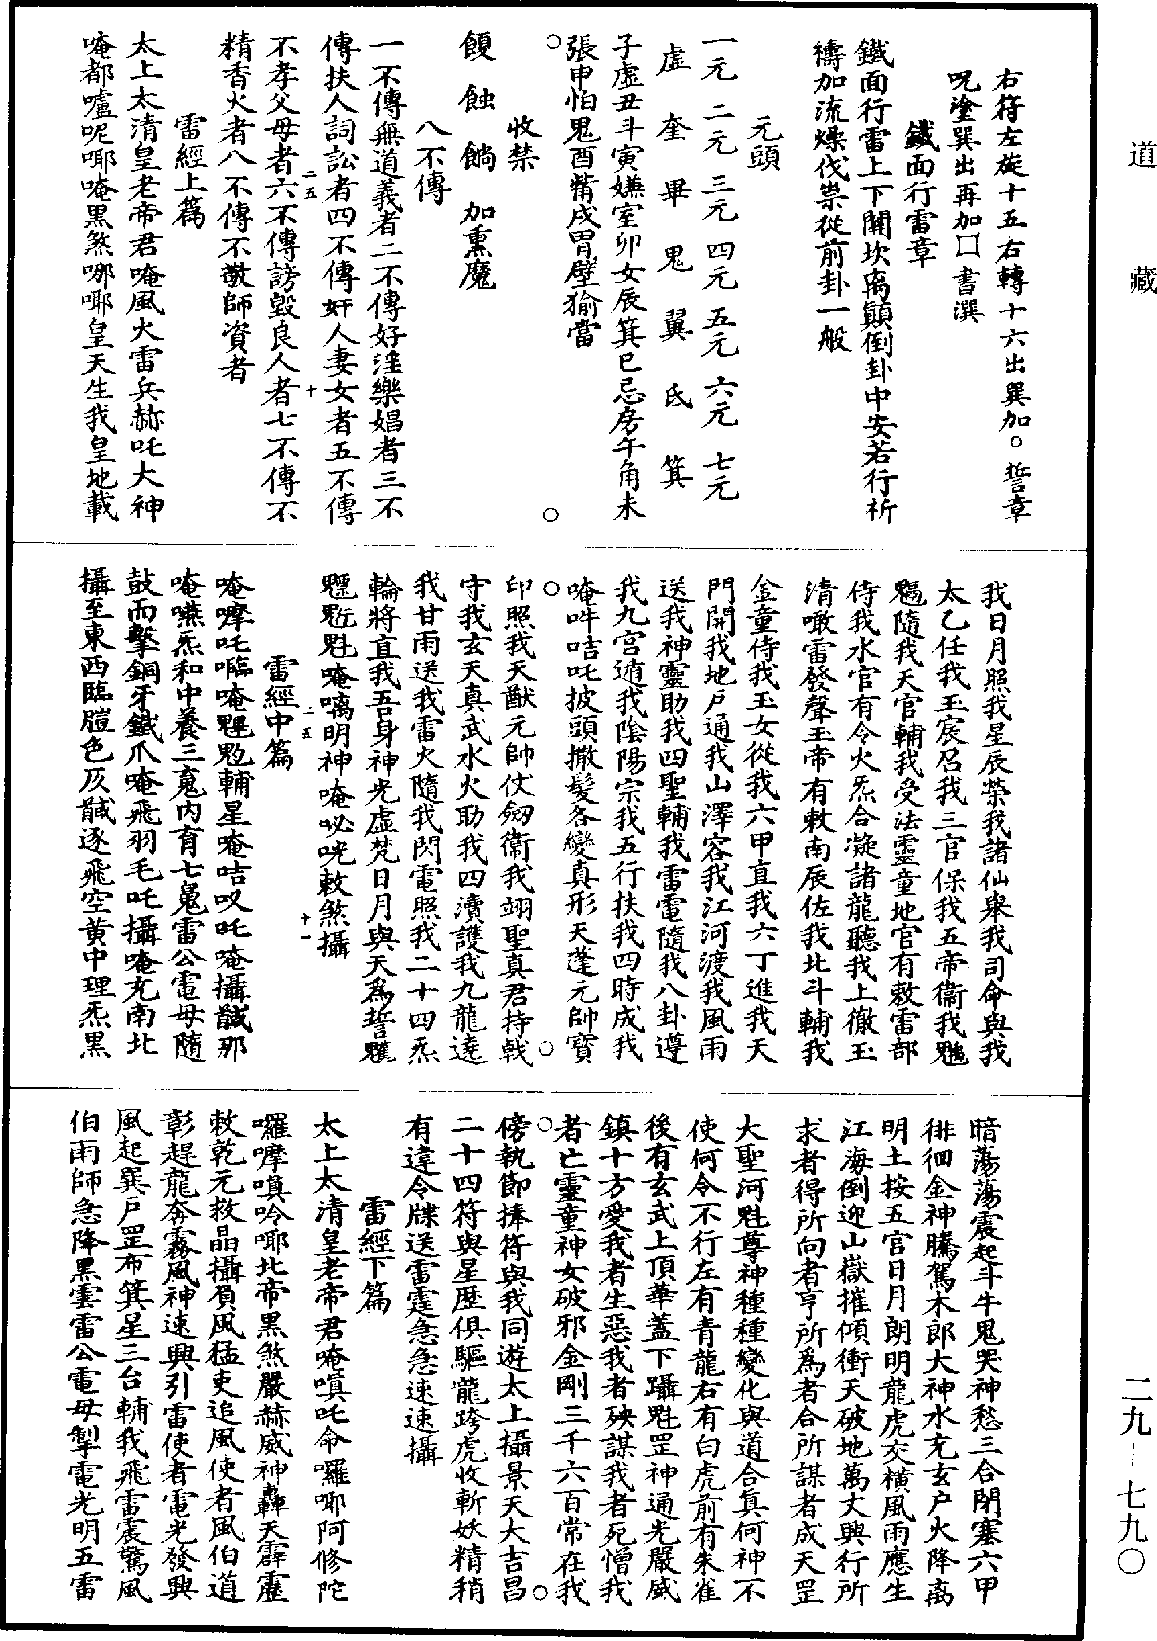 道藏
二九——七九〇
右符左旋十五右轉十六出巽加○誓章
呪塗巽出再加囗書潠
鐵面行雷章
鐵面行雷上下開坎离顛倒卦中安若行祈
禱加流燥伐祟從前卦一般
元頭
一元 二元 三元 四元 五元 六元 七元
虛 奎 畢 鬼 翼 氐 箕
子虛丑斗寅嫌室卯女辰箕巳忌房午角未
張申怕鬼酉觜戌胃壁猶當
○ ○
收禁
餿 蝕 餉 加熏魔
八不傳
一不傳無道義者二不傳好淫樂娼者三不
傳扶人詞訟者四不傳奸人妻女者五不傳
不孝父母者六不傳謗毀良人者七不傳不
二五 十
精香火者八不傳不敬師資者
雷經上篇
太上太清皇老帝君唵風火雷兵赫吒大神
唵都嚧呢唧唵黑煞哪唧皇天生我皇地載
我日月照我星辰榮我諸仙舉我司命與我
太乙任我玉宸召我三官保我五帝衞我魁
魒隨我天官輔我受法靈童地官有敕雷部
侍我水官有令火炁合凝諸龍聽我上徹玉
清噉雷發聲玉帝有敕南辰佐我北斗輔我
金童侍我玉女從我六甲直我六丁進我天
門開我地戶通我山澤容我江河渡我風雨
送我神靈助我四聖輔我雷電隨我八卦遵
我九宮逍我陰陽宗我五行扶我四時成我
唵吽咭吒披頭撒髮各變真形天蓬元帥寶
○ ○
印照我天猷元帥仗劒衞我翊聖真君持戟
守我玄天真武水火助我四瀆護我九龍遶
我甘雨送我雷火隨我閃電照我二十四炁
輪將直我吾身神光虛梵日月與天為誓魓
唵囒明神唵吣咣敕煞攝
二五 十一
雷經中篇
唵嚤吒囒唵輔星唵咭叹吒唵攝馘那
唵嚥炁和中養三䰟內育七魄雷公電母隨
鼓而擊銅牙鐵爪唵飛羽毛吒攝唵充南北
攝至東西臨膛色及馘逐飛空黃中理炁黑
暗蕩蕩震起斗牛鬼哭神愁三合閉塞六甲
徘徊金神騰駕木郎大神水充玄戶火降离
明土按五官日月朗明龍虎交橫風雨應生
江海倒迎山嶽摧傾衝天破地萬丈興行所
求者得所向者亨所為者合所謀者成天罡
大聖河魁尊神種種變化與道合真何神不
使何令不行左有青龍右有白虎前有朱雀
後有玄武上頂華蓋下躡魁罡神通光嚴威
鎮十方愛我者生惡我者殃謀我者死憎我
者亡靈童神女破邪金剛三千六百常在我
○ ○
傍執節捧符與我同遊太上攝景天大吉昌
二十四符與星歷俱驅龍跨虎收斬妖精稍
有違令牒送雷霆急急速速攝
雷經下篇
太上太清皇老帝君唵嗔吒命囉唧阿修陀
囉嚤嗔唥唧北帝黑煞嚴赫威神轟天霹靂
敕乾元敕晶攝負風猛吏追風使者風伯道
彰趕龍奔霧風神速興引雷使者電光發興
風起巽戶罡布箕星三台輔我飛雷震驚風
伯雨師急降黑雲雷公電母掣電光明五雷